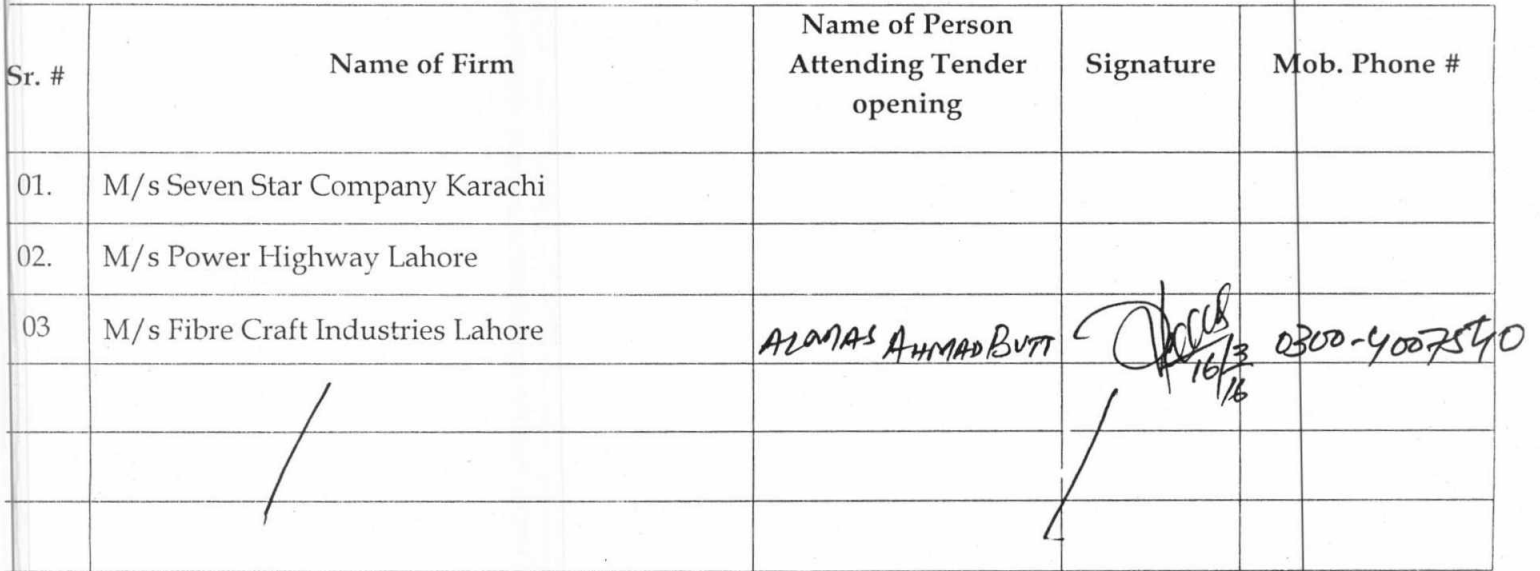 Sr. #
Name of Firm
Name of Person
Attending Tender
opening
Signature
Mob. Phone #
01.
M/s Seven Star Company Karachi
02.
M/s Power Highway Lahore
03
M/s Fibre Craft Industries Lahore
ALMAS AHMAD BUTT
16/3/16
0300-4007540